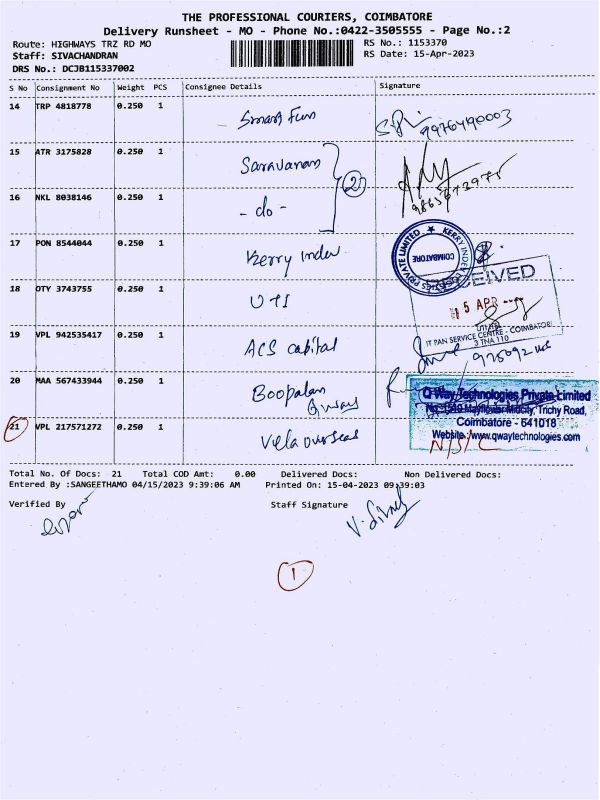 THE PROFESSIONAL COURIERS, COIMBATORE
Delivery Runsheet - MO - Phone No.:0422-3505555 - Page No.:2
Route: HIGHWAYS TRZ RD MO
Staff: SIVACHANDRAN
DRS No.: DCJB115337002
RS No.: 1153370
RS Date: 15-Apr-2023
S No Consignment No Weight PCS Consignee Details Signature
14 TRP 4818778 0.250 1 Smart Fun 9976490003
15 ATR 3175828 0.250 1 Saravanan
2
16 NKL 8038146 0.250 1 - do -
17 PON 8544044 0.250 1 Kerry Indev
COIMBATORE
18 OTY 3743755 0.250 1 UTI
RECEIVED
15 APR
IT PAN SERVICE CENTRE - COIMBATORE
3 TNA 110
19 VPL 942535417 0.250 1 ACS capital
20 MAA 567433944 0.250 1 Boopalan
Qways
Q Way Technologies Private Limited
Mayflower Midcity, Trichy Road,
Coimbatore - 641018
Website: www.qwaytechnologies.com
21 VPL 217571272 0.250 1 Vela overseas
N/S/C
Total No. Of Docs: 21 Total COD Amt: 0.00 Delivered Docs: Non Delivered Docs:
Entered By :SANGEETHAMO 04/15/2023 9:39:06 AM Printed On: 15-04-2023 09:39:03
Verified By Staff Signature
1